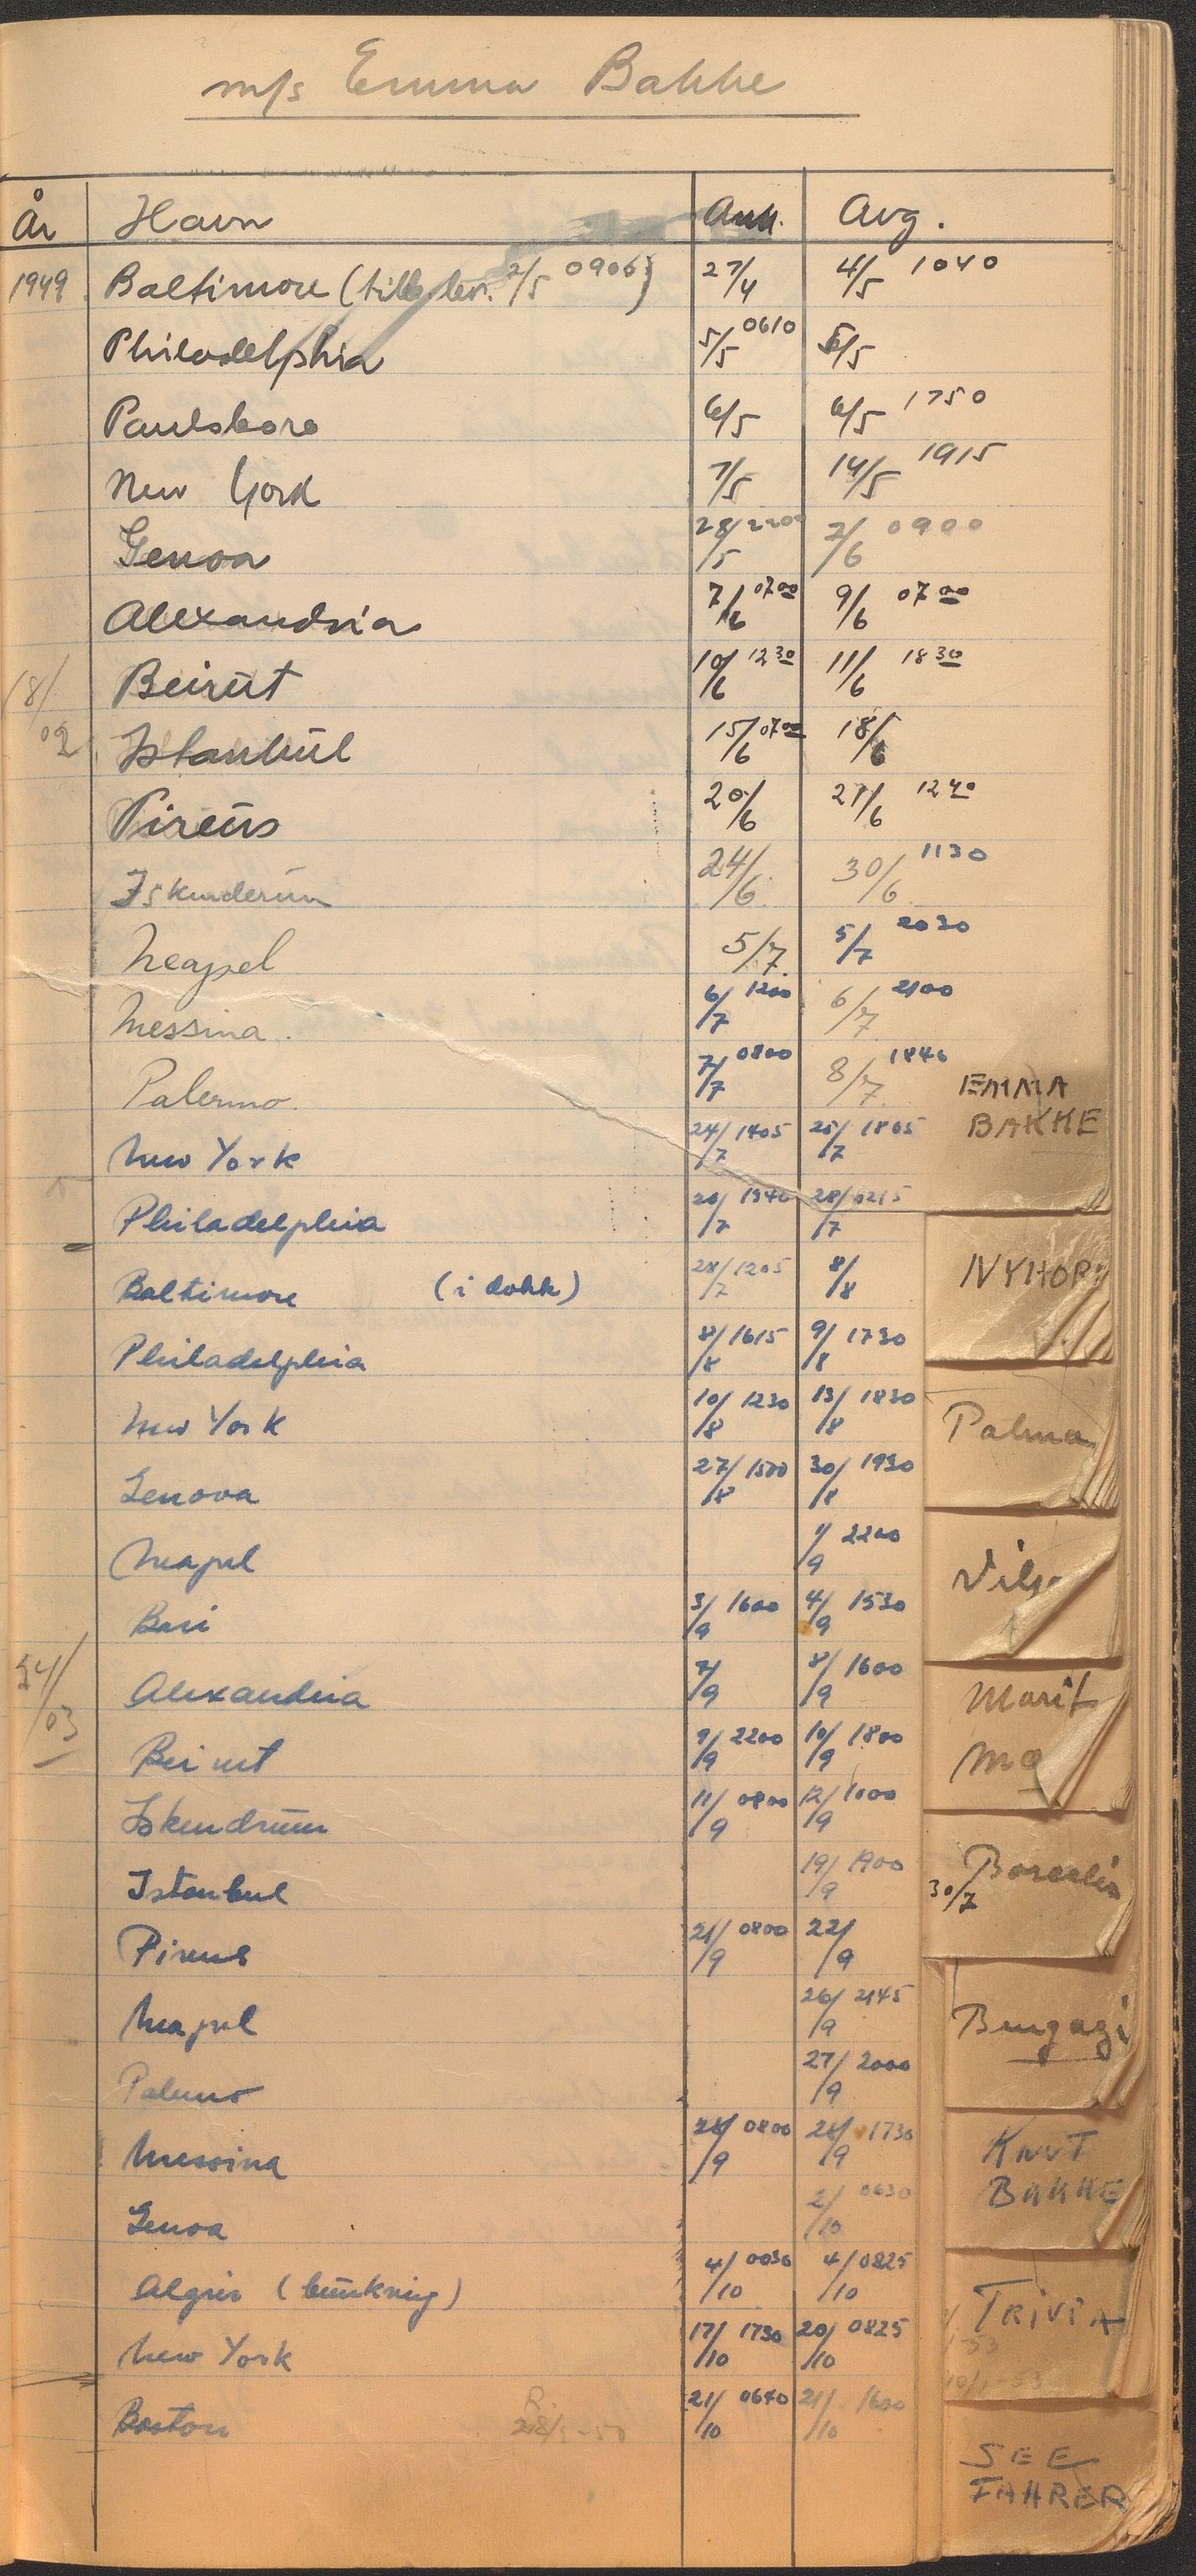 m/s Emma Bakke
År Havn Ank. Avg.
1949 Baltimore (tilb.lev. 2/5 0906) 27/4 4/5 1040
Philadelphia 5/5 0610 5/5
Paulsboro 6/5 6/5 1750
New York 7/5 14/5 1915
Genoa 28/5 2200 2/6 0900
Alexandria 7/6 0700 9/6 0700
Beirut 10/6 1230 11/6 1830
18/02
Istanbul 15/6 0700 18/6
Pireus 20/6 21/6 1240
Iskenderun 24/6 30/6 1130
Neapel 5/7 5/7 2030
Messina 6/7 1200 6/7 2100
Palermo 7/7 0800 8/7 1846
New York 24/7 1405 25/7 1805
Philadelphia 26/7 1340 28/7 0215
Baltimore (i dokk) 28/7 1205 8/8
Philadelphia 8/8 1615 9/8 1730
New York 10/8 1230 13/8 1830
Genova 27/8 1500 30/8 1930
Neapel 1/9 2200
Bari 3/9 1600 4/9 1530
Alexandria 7/9 8/9 1600
24/03
Beirut 9/9 2200 10/9 1800
Iskendrum 11/9 0800 12/9 1000
Istanbul 19/9 1900
Pireus 21/9 0800 22/9
Neapel 26/9 2145
Palermo 27/9 2000
Messina 28/9 0800 28/9 1730
Genoa 2/10 0630
Algier (bunkring) 4/10 0030 4/10 0825
New York 17/10 1730 20/10 0825
Boston 21/10 0640 21/10 1600
EMMA
BAKKE
NYHORN
Palma
Vils
Marit
Ma
30/7
KNUT
BAKKE
TRIVIA
SEE
FAHRER